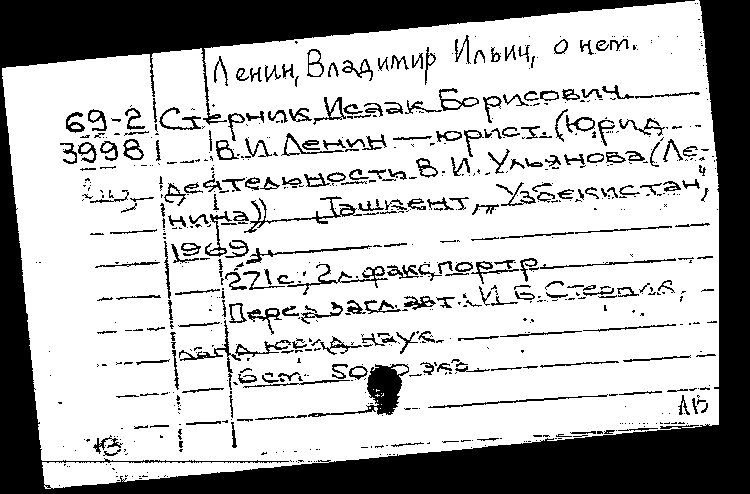 Ленин, Владимир Ильич, о нем.
69-2 Стерник, Исаак Борисович.
3998 В.И. Ленин — юрист. (Юрид.
деятельность В.И. Ульянова (Ле-
нина)) Ташкент, "Узбекистан",
1969.
271 с.; 2 л. факс, портр.
Перед загл. авт.: И.Б. Стерник,
канд. юрид. наук
5000 экз.